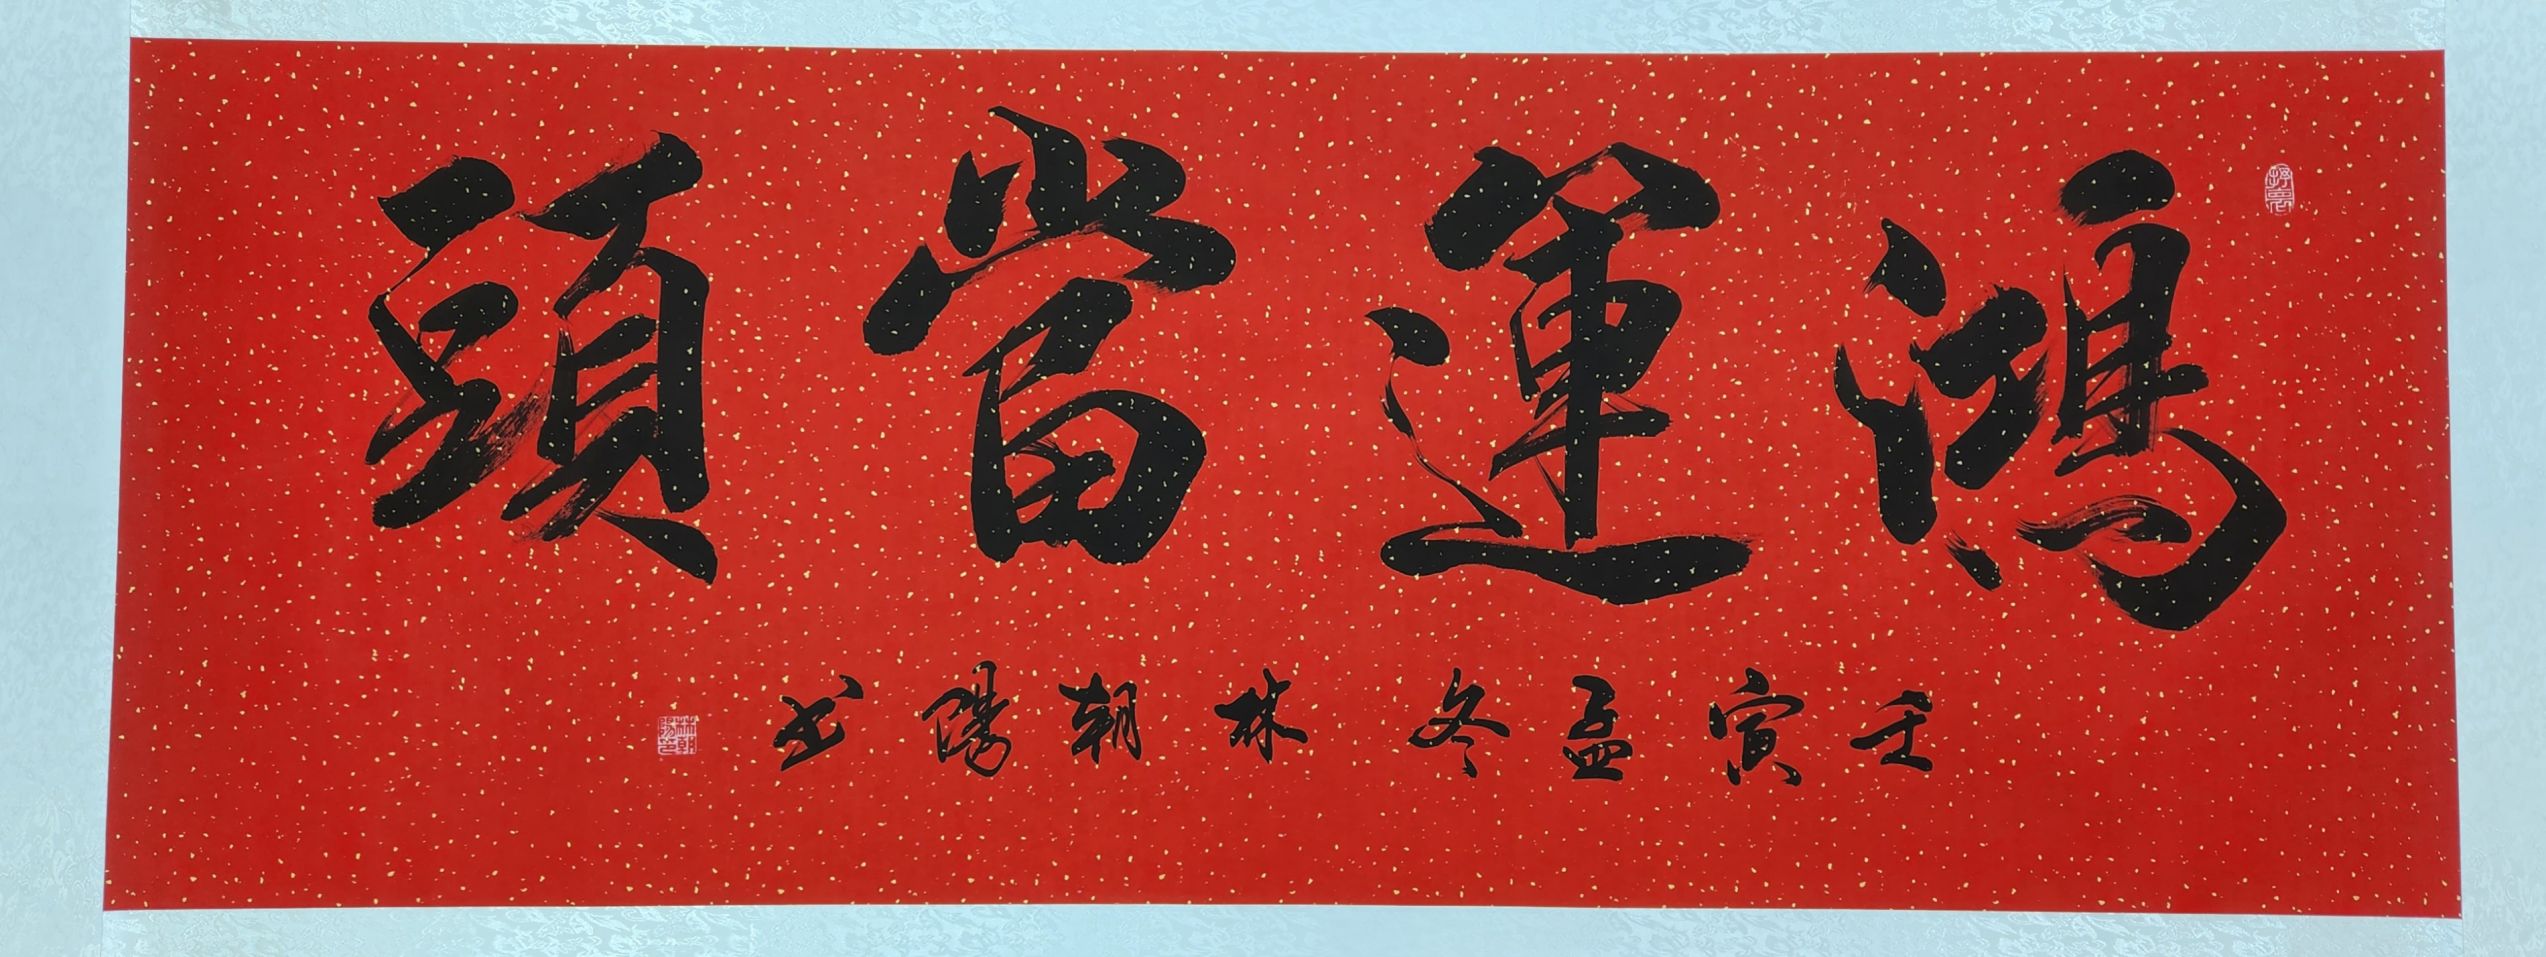 鴻運當頭
壬寅孟冬 林朝陽书
林朝陽印